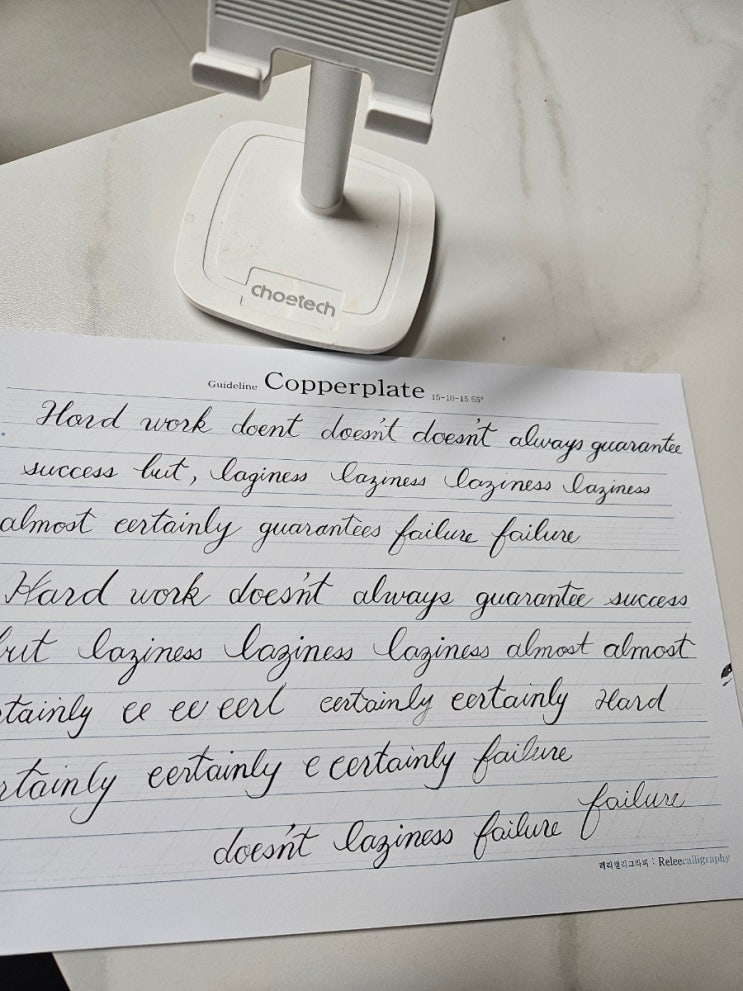 choetech
Guideline Copperplate 15-10-15 55°
Hard work doent doesn't doesn't always guarantee
success but, laginess laziness laziness laziness
almost certainly guarantees failure failure
Hard work doesn't always guarantee success
but laziness laziness laziness almost almost
tainly ce ce cerl certainly certainly Hard
rtainly certainly c certainly failure
doesn't laziness failure failure
캘리그라피 : Releecalligraphy